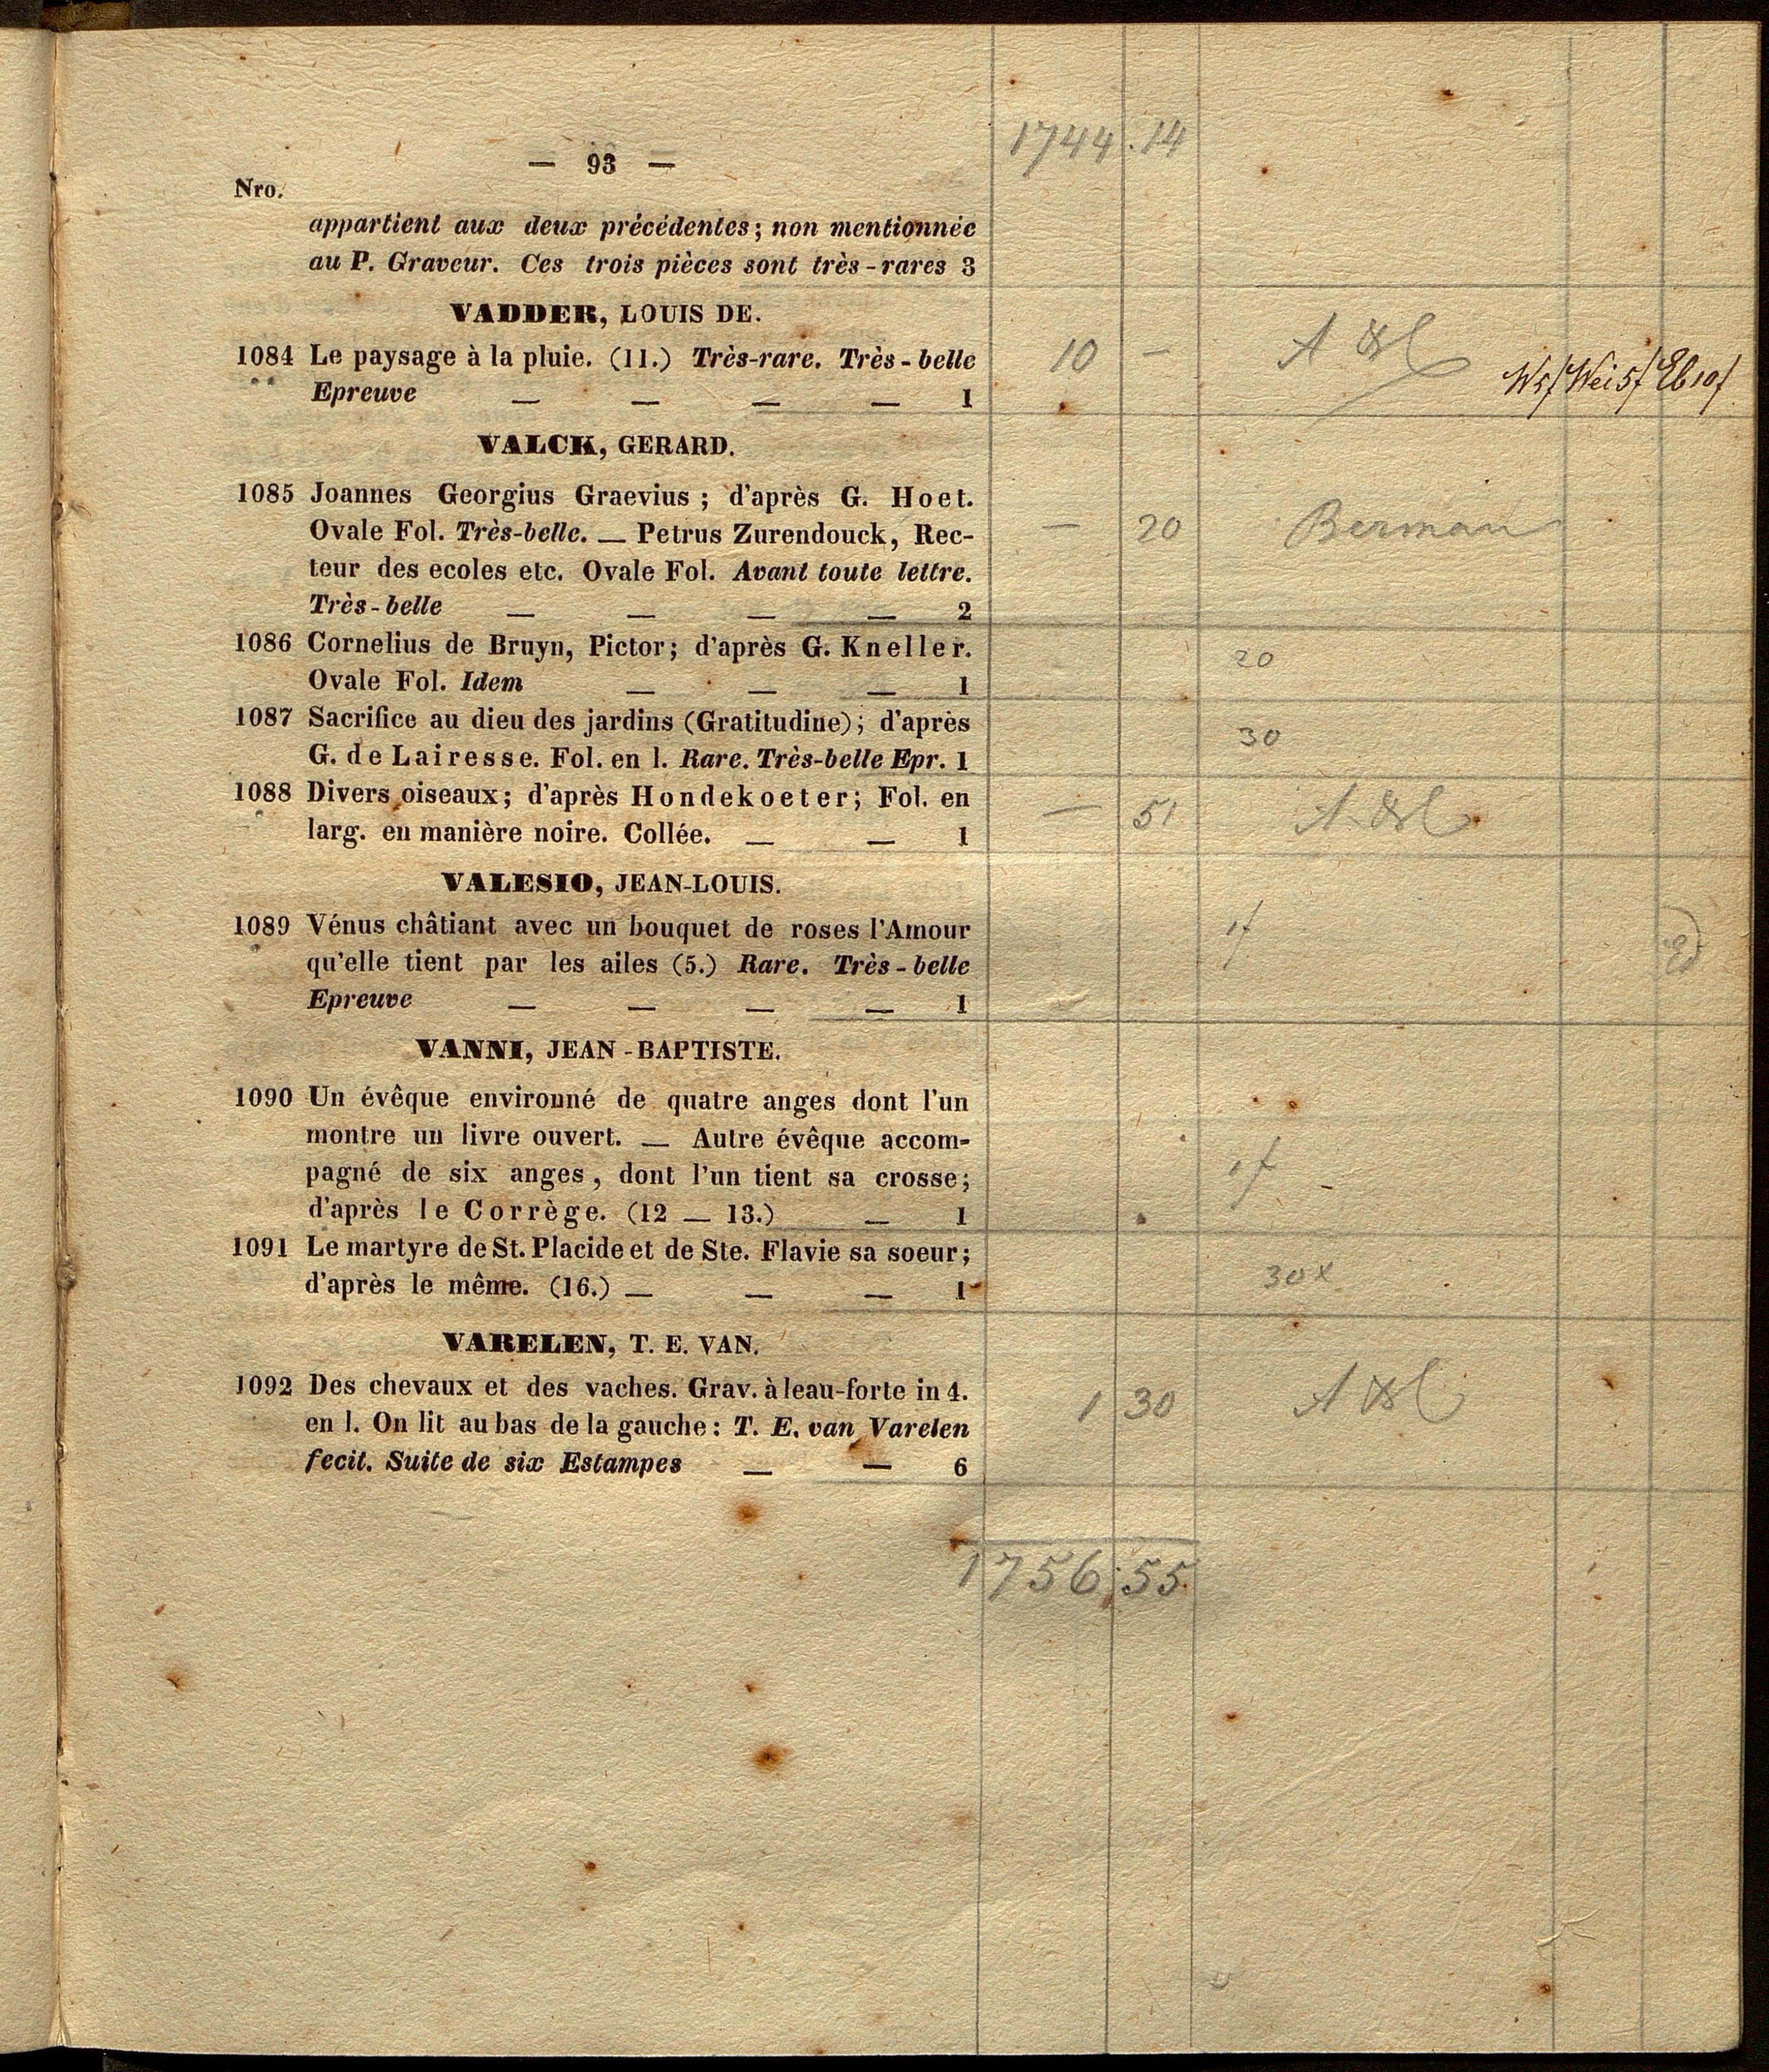 1744.14
— 93 —
Nro.
appartient aux deux précédentes; non mentionnée
au P. Graveur. Ces trois pièces sont très-rares 3
VADDER, LOUIS DE.
1084 Le paysage à la pluie. (11.) Très-rare. Très-belle
Epreuve — — — — 1
10 —
W5f Wei5f Eb10f
VALCK, GERARD.
1085 Joannes Georgius Graevius; d'après G. Hoet.
Ovale Fol. Très-belle. — Petrus Zurendouck, Rec-
teur des ecoles etc. Ovale Fol. Avant toute lettre.
Très-belle — — — — 2
— 20 Berman
1086 Cornelius de Bruyn, Pictor; d'après G. Kneller.
Ovale Fol. Idem — — — 1
20
1087 Sacrifice au dieu des jardins (Gratitudine); d'après
G. de Lairesse. Fol. en l. Rare. Très-belle Epr. 1
30
1088 Divers oiseaux; d'après Hondekoeter; Fol. en
larg. en manière noire. Collée. — — 1
— 51
VALESIO, JEAN-LOUIS.
1089 Vénus châtiant avec un bouquet de roses l'Amour
qu'elle tient par les ailes (5.) Rare. Très-belle
Epreuve — — — — 1
1f
VANNI, JEAN-BAPTISTE.
1090 Un évêque environné de quatre anges dont l'un
montre un livre ouvert. — Autre évêque accom-
pagné de six anges, dont l'un tient sa crosse;
d'après le Corrège. (12 — 13.) — 1
1f
1091 Le martyre de St. Placide et de Ste. Flavie sa soeur;
d'après le même. (16.) — — — 1
30x
VARELEN, T. E. VAN.
1092 Des chevaux et des vaches. Grav. à leau-forte in 4.
en l. On lit au bas de la gauche: T. E. van Varelen
fecit. Suite de six Estampes — — 6
1 30
1756.55